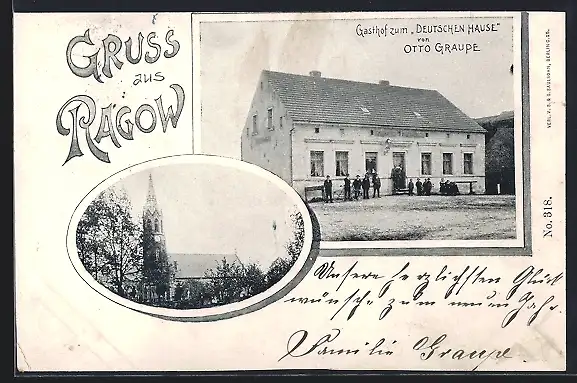 GRUSS
aus
RAGOW
Gasthof zum „DEUTSCHEN HAUSE"
von
OTTO GRAUPE
No. 318.
Unsere herzlichsten Glück
wünsche zum neuen Jahr.
Familie Graupe